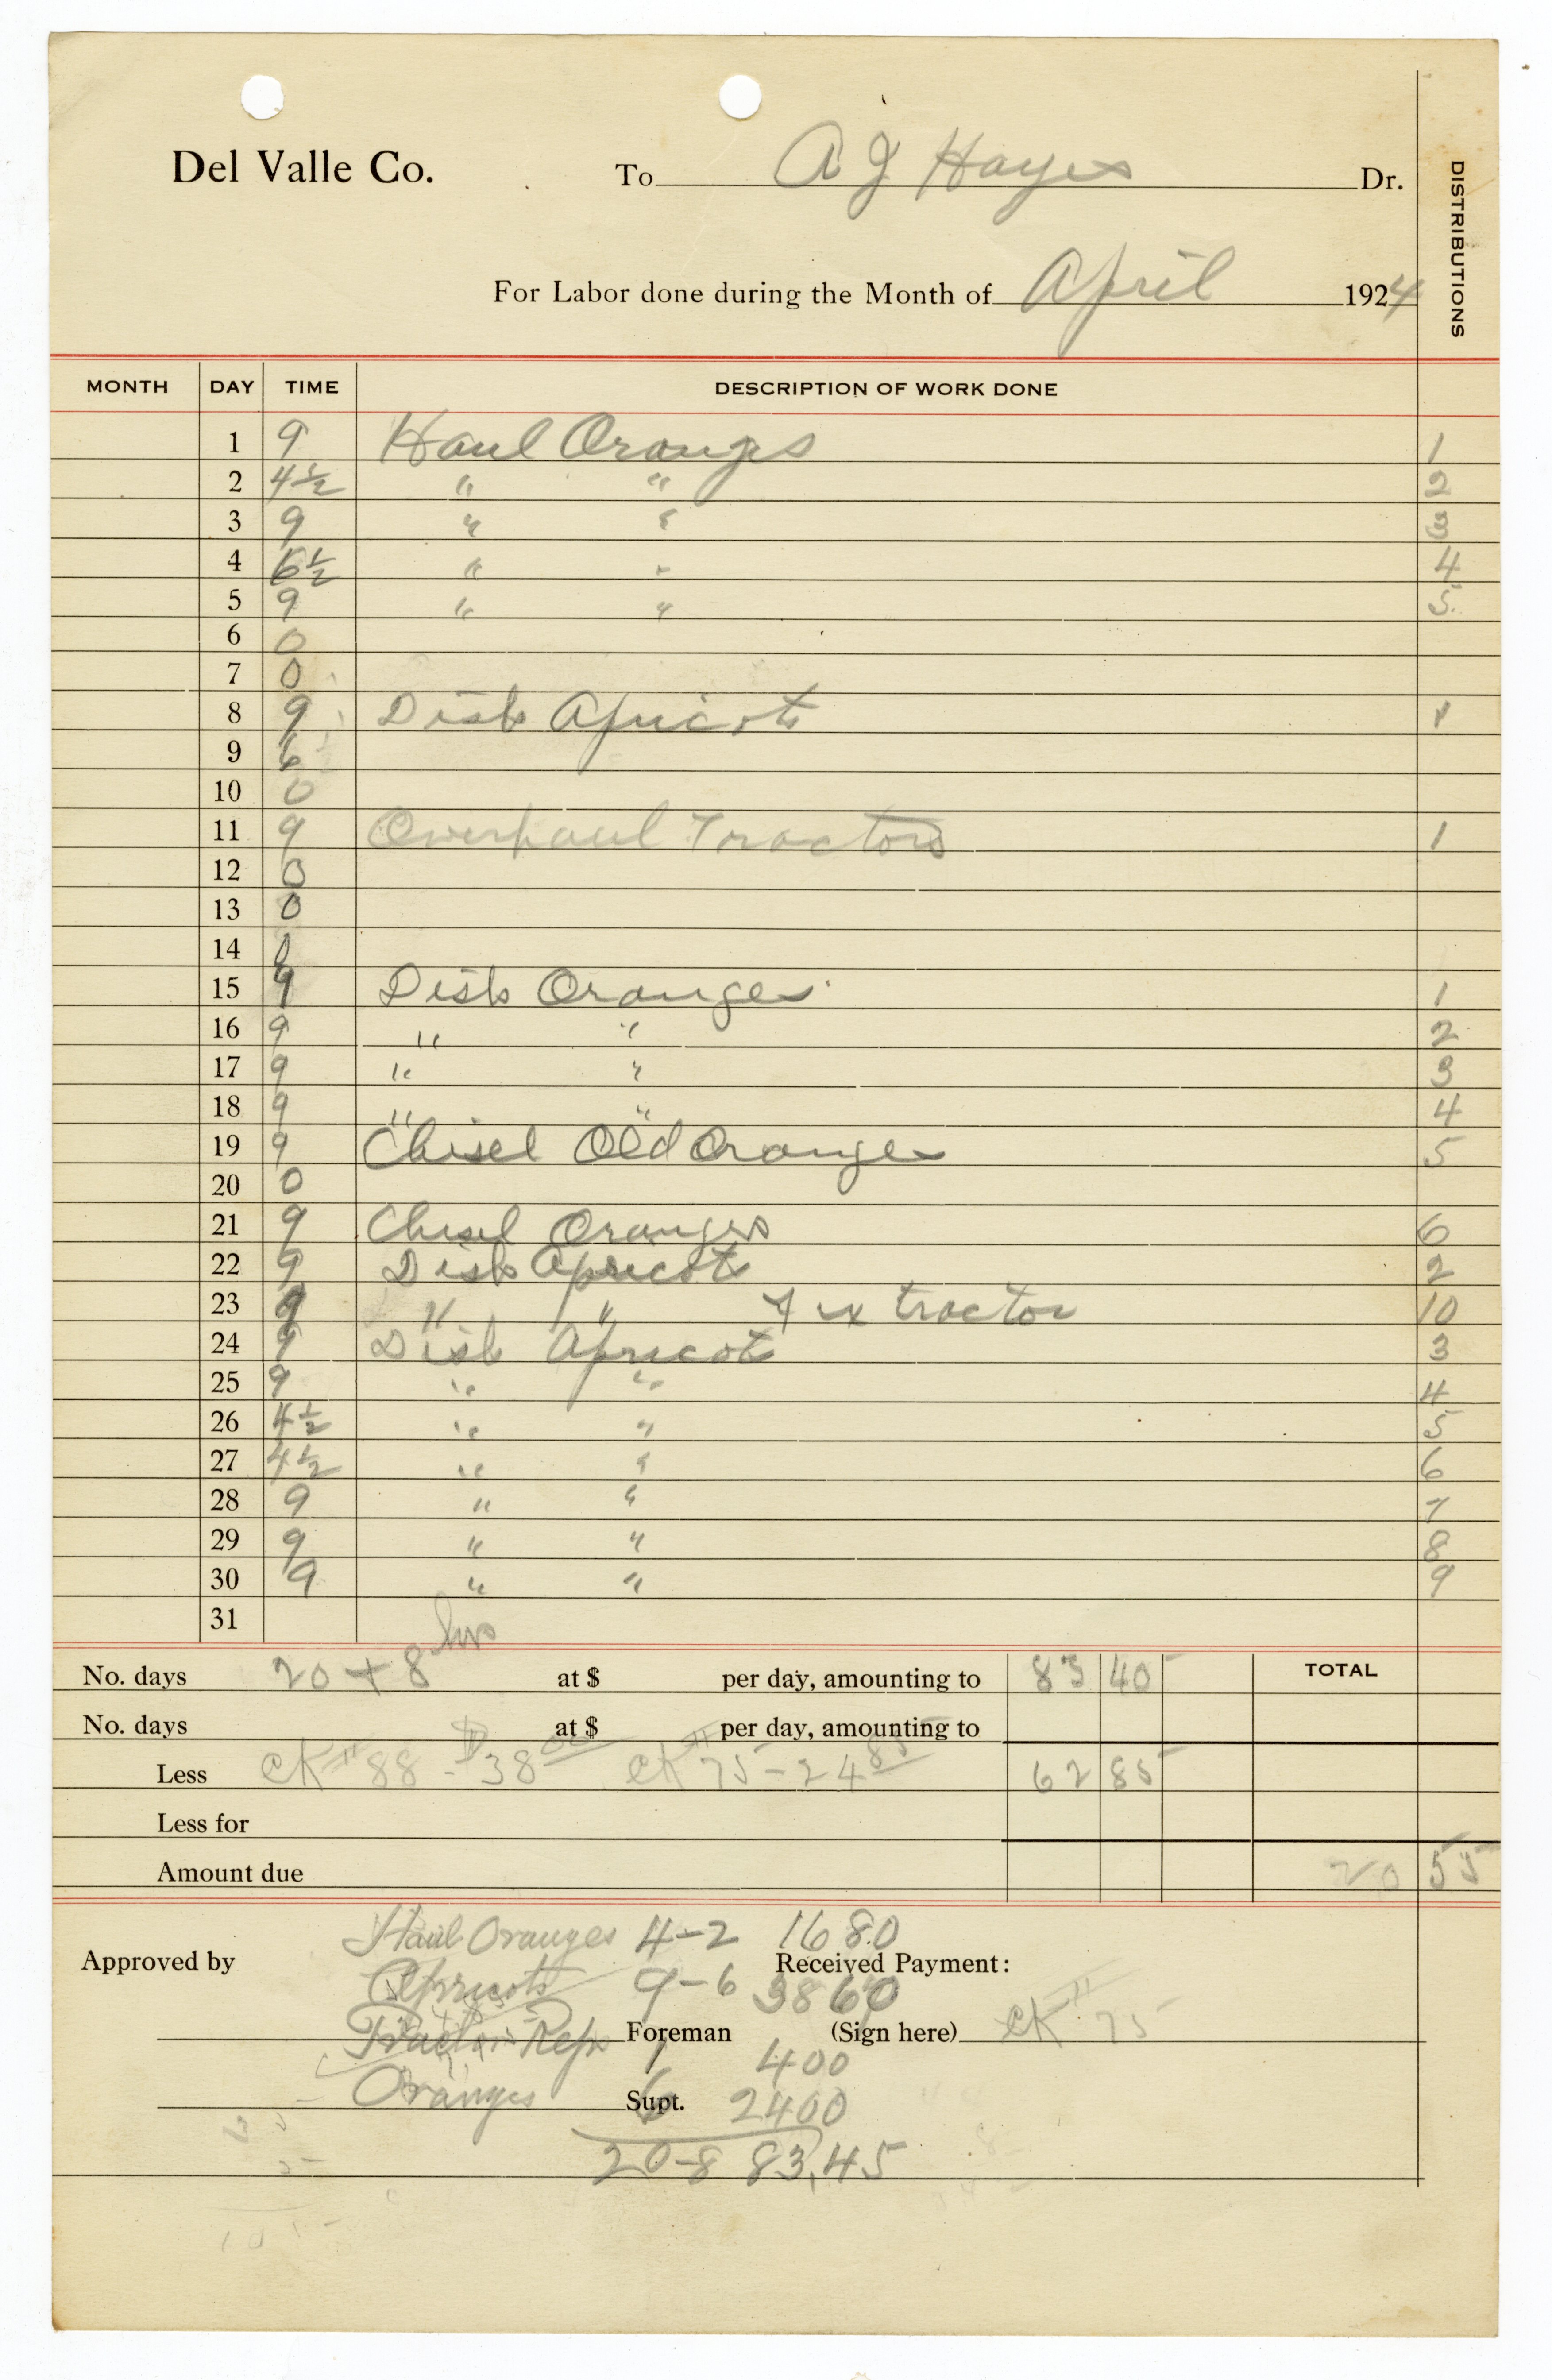 Del Valle Co. To A J Hayes Dr.
DISTRIBUTIONS
For Labor done during the Month of April 1924
MONTH DAY TIME DESCRIPTION OF WORK DONE
1 9 Haul Oranges 1
2 4½ " " 2
3 9 " " 3
4 6½ " " 4
5 9 " " 5
6 0
7 0
8 9 Disk Apricots 1
9 6
10 0
11 9 Overhaul Tractors 1
12 0
13 0
14 0
15 9 Disk Oranges 1
16 9 " " 2
17 9 " " 3
18 9 " " 4
19 9 Chisel Old Oranges 5
20 0
21 9 Chisel Oranges 6
22 9 Disk Apricots 2
23 9 " " tractor 10
24 9 Disk Apricots 3
25 9 " " 4
26 4½ " " 5
27 4½ " " 6
28 9 " " 7
29 9 " " 8
30 9 " " 9
31
No. days 20 + 8 hrs at $ per day, amounting to 83 40 TOTAL
No. days at $ per day, amounting to
Less CK # 88 - $38 00 CK # 75 - 24 85 62 85
Less for
Amount due 20 55
Haul Oranges 4-2 16 80
Approved by Received Payment:
Apricots 9-6 38 60
Tractor Reps Foreman (Sign here) CK # 75
1 400
Oranges 6 Supt. 2400
20-8 83.45